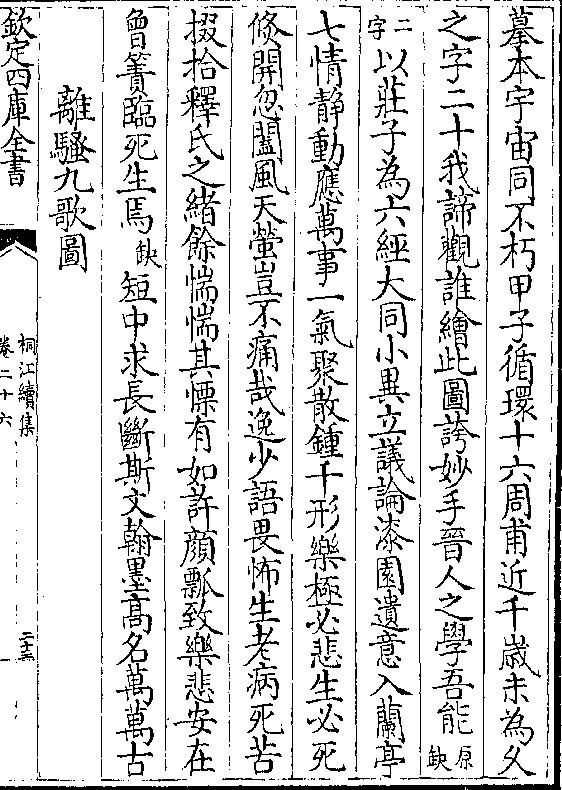 摹本宇宙同不朽甲子循環十六周甫近千歲未為久
之字二十我諦觀誰繪此圖誇妙手晉人之學吾能原缺
二字以莊子為六經大同小異立議論漆園遺意入蘭亭
七情靜動應萬事一氣聚散鍾千形樂極必悲生必死
倐開忽闔風天螢豈不痛哉逸少語畏怖生老病死苦
掇拾釋氏之緒餘惴惴其慄有如許顔瓢致樂悲安在
曾簀臨死生焉缺短中求長斷斯文翰墨髙名萬萬古
離騷九歌圖
欽定四庫全書
桐江續集
卷二十六